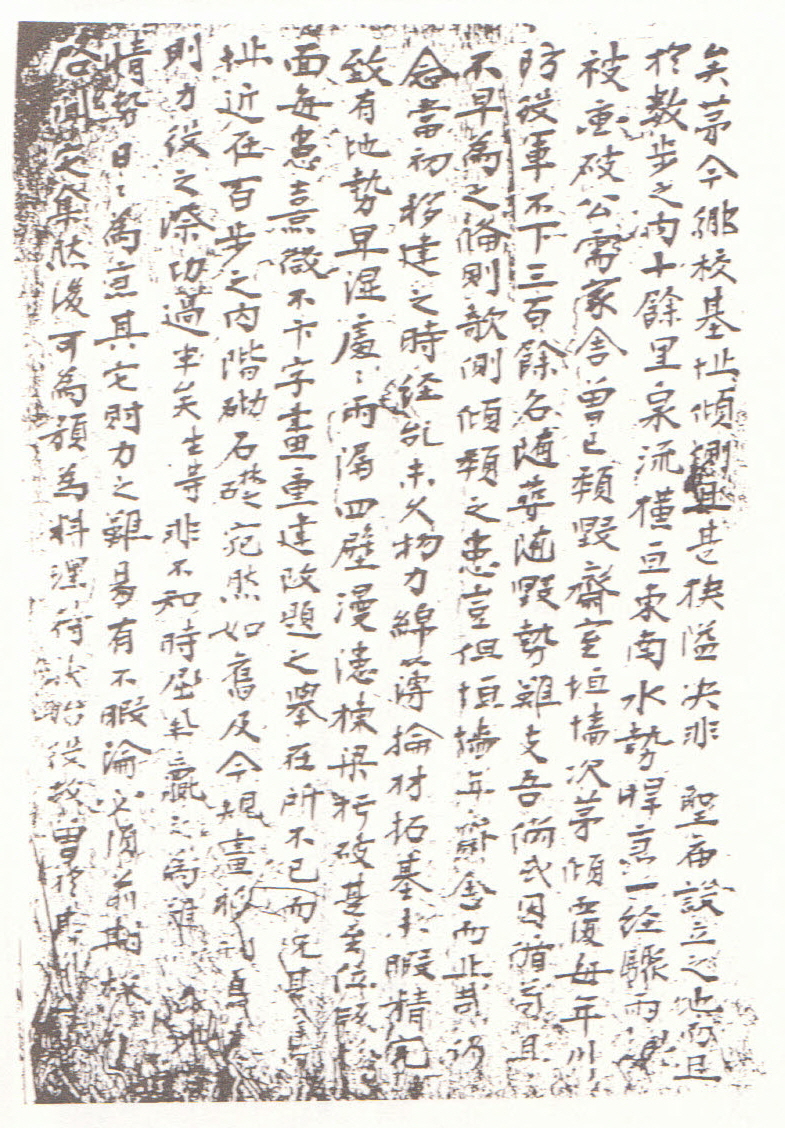 矣茅今鄉校基址傾側其甚狹隘决非 聖廟設立之地而且
扵數步之內十餘里泉流橫亘東南水勢悍急一經驟雨
被重破公需家舍曾已頹毁齋室垣墻次茅傾覆每年
防役軍不下三百餘名隨葺随毁勢難支吾倘或因循苟且
不早為之俻則欹側傾頹之患豈但垣墻年齋舍而止哉
念當初移建之時経乱未久物力綿薄掄材拓基未暇精完
致有地勢卑湿處〻雨漏四壁漫漶棟梁朽破甚至位
面每患熹微不卞字畫重建改題之擧在所不已而况其
址近在百步之內階砌石礎宛然如舊及今規畫移
則力役之際功過半矣生等非不知時屈擧贏之為難
情勢日〻為急其它財力之難易有不暇論必須前期
啓聞完集然後可為預為料理待秋始役故曾扵